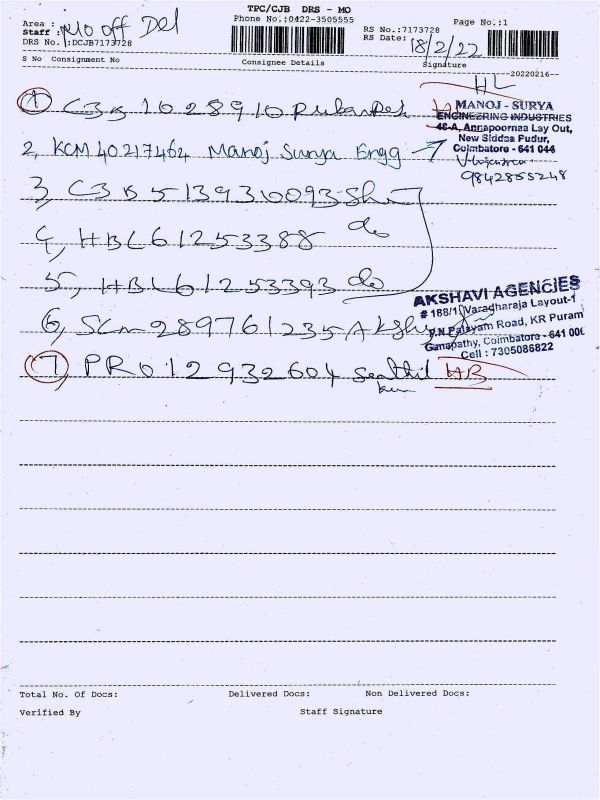 TPC/CJB DRS - MO
Phone No.:0422-3505555
Page No.:1
Area :
Staff : MO off Del
DRS No. :DCJB7173728
RS No.:7173728
RS Date: 18/2/22
S No Consignment No
Consignee Details
Signature
20220216
HL
1, CJB 1028910
MANOJ - SURYA
ENGINEERING INDUSTRIES
48-A, Annapoornaa Lay Out,
New Siddaa Pudur,
Coimbatore - 641 044
9842855248
2, KCM 40217464 Manoj Surya Engg
3, CJB 513930093
4, HBL 61253388 do
5, HBL 61253393 do
6, SCM 289761235
AKSHAVI AGENCIES
# 188/1, Varadharaja Layout-1
P.N.Palayam Road, KR Puram
Ganapathy, Coimbatore - 641 006
Cell : 7305086822
7, PRO 12932604 Senthil
Total No. Of Docs:
Delivered Docs:
Non Delivered Docs:
Verified By
Staff Signature